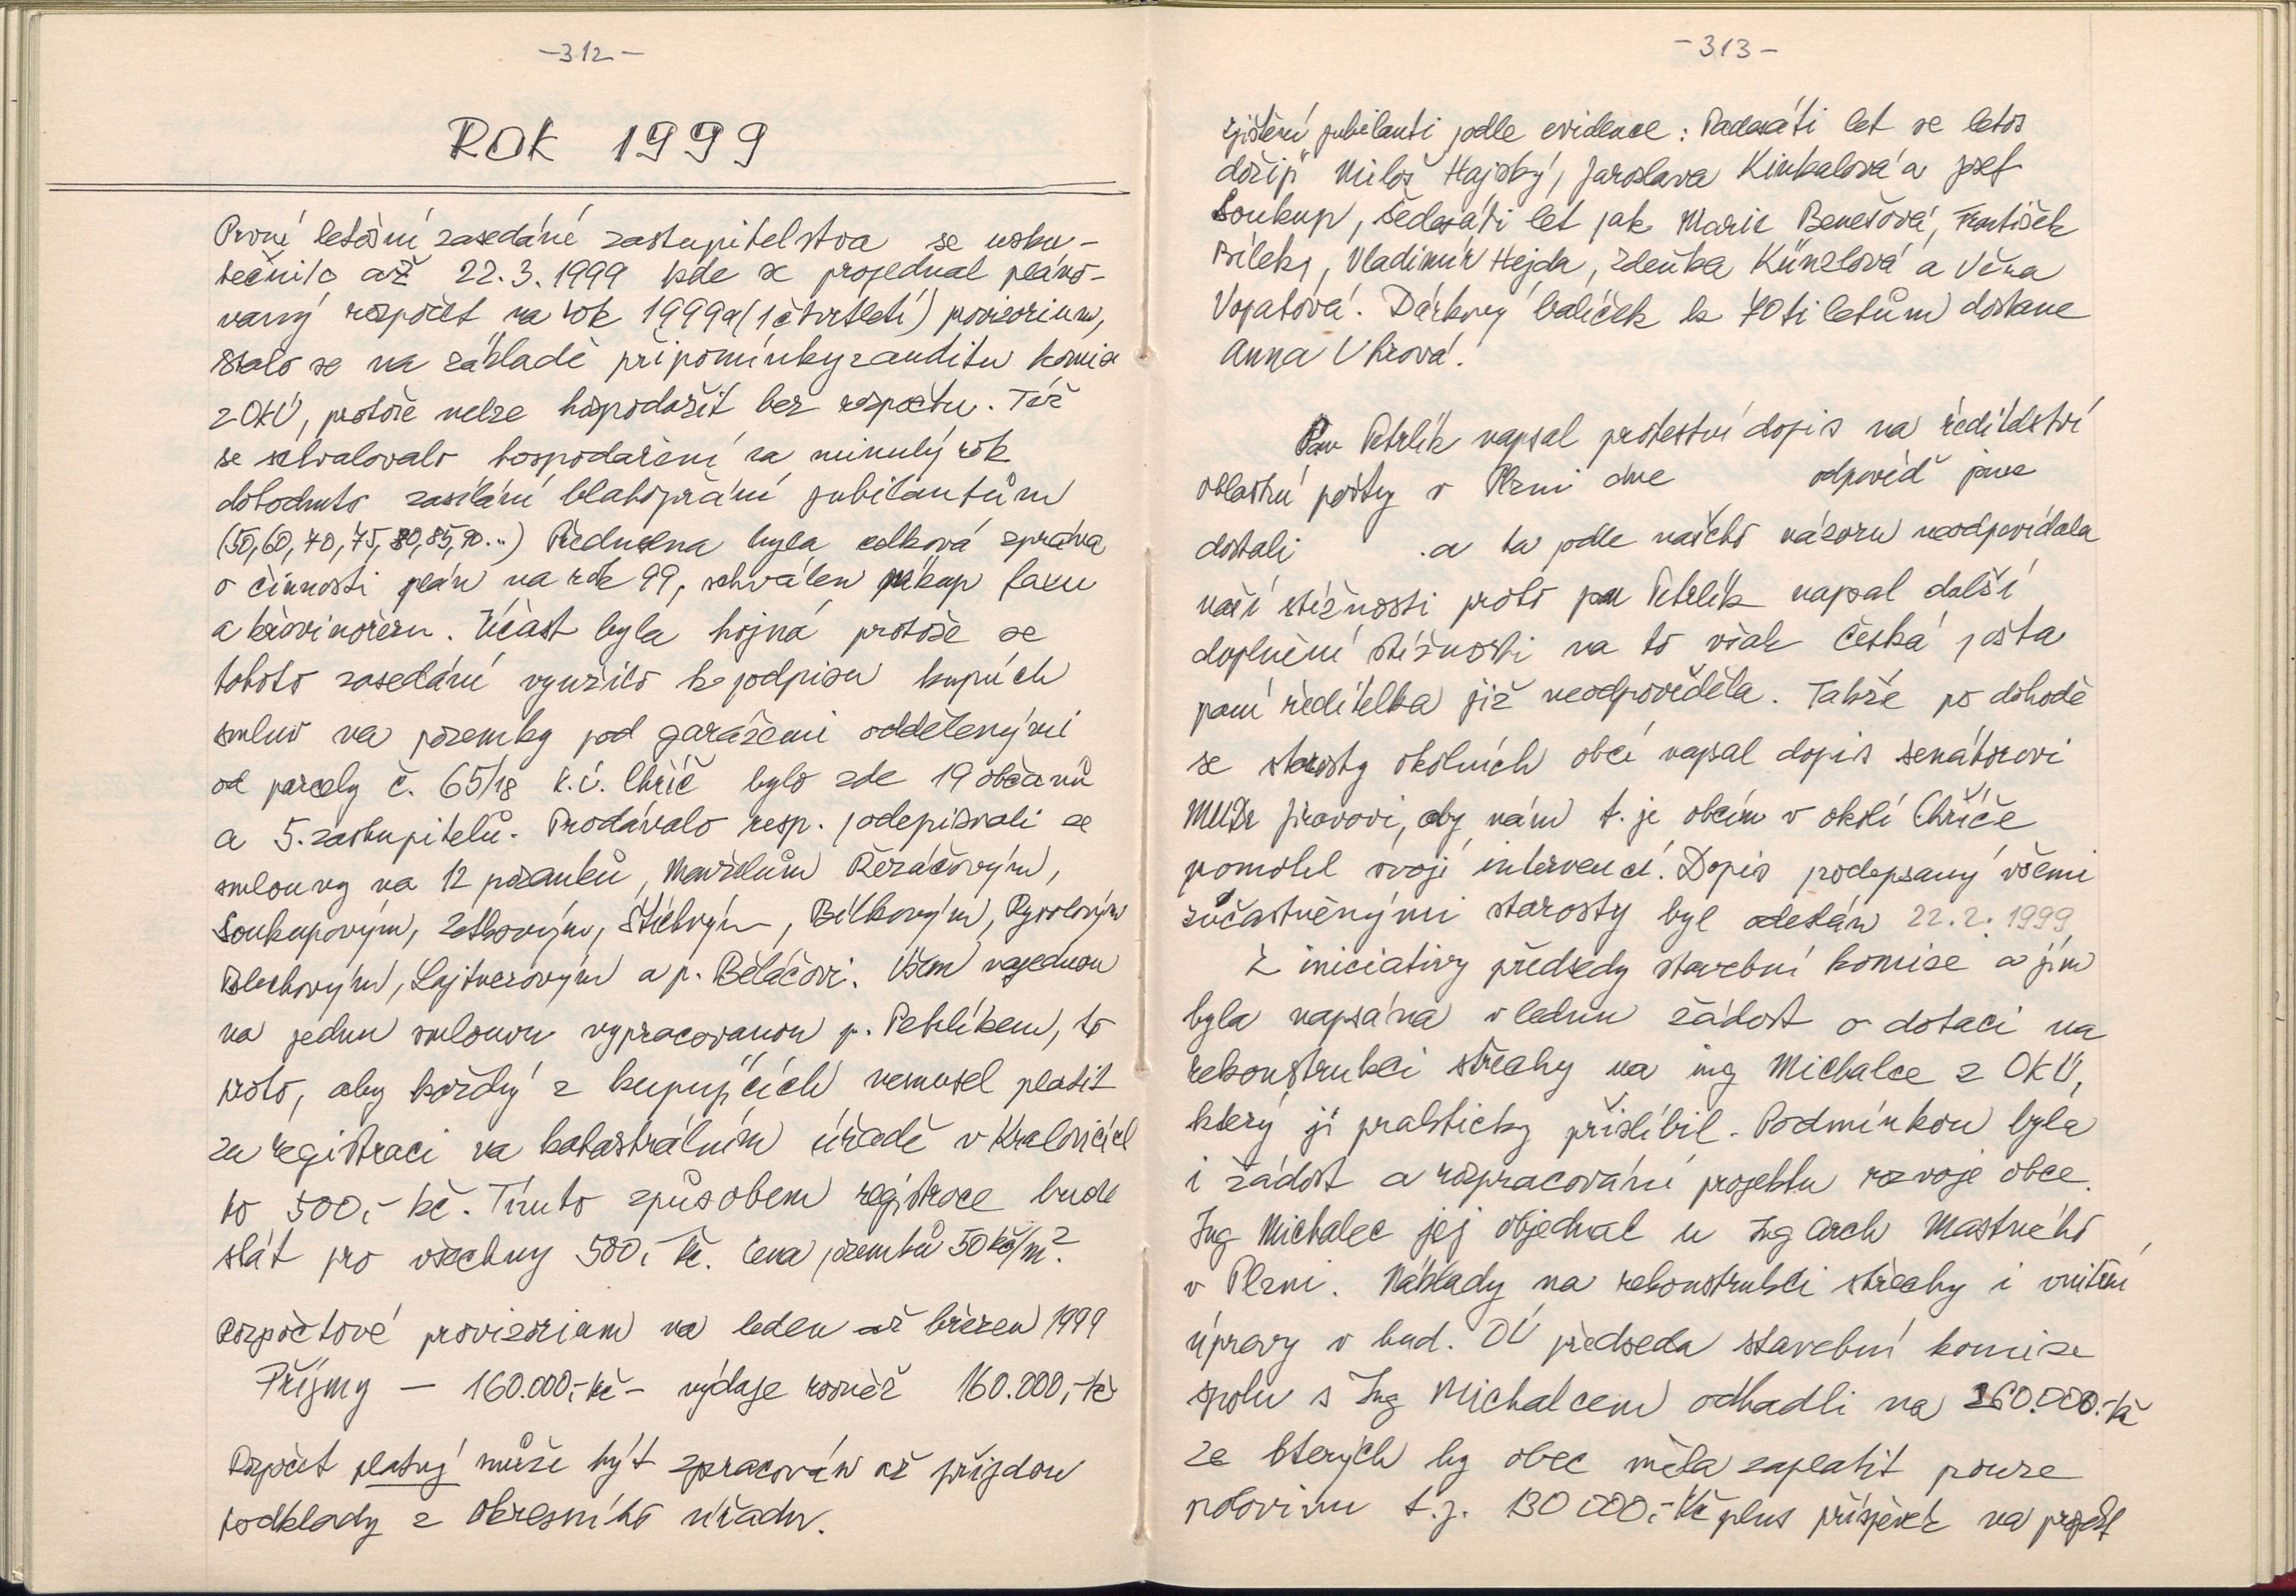 -312-
ROK 1999
První letošní zasedání zastupitelstva se usku-
tečnilo až 22.3.1999 kde se projednal pláno-
vaný rozpočet na rok 1999 a (1 čtvrtletí) provizorium,
stalo se na základě připomínky z auditu komise
z OkÚ, protože nelze hospodařit bez rozpočtu. Též
se schvalovalo hospodaření za minulý rok
dohodnuto zasílání blahopřání jubilantům
(50,60,70,75,80,85,90...) Přednesena byla celková zpráva
o činnosti plán na rok 99, schválen nákup faxu
a křovinořezu. Účast byla hojná protože se
tohoto zasedání využilo k podpisu kupních
smluv na pozemky pod garážemi oddělenými
od parcely č. 65/18 k.ú. Chříč bylo zde 19 občanů
a 5. zastupitelů. Prodávalo resp. podepisovali se
smlouvy na 12 pozemků, Manželům Řezáčovým,
Soukupovým, Štichným, Bílkovým,
Blechovým, Lajtnerovým a p. Běláčovi. Všem najednou
na jednu smlouvu vypracovanou p. Petrlíkem, to
proto, aby každý z kupujících nemusel platit
za registraci na katastrálním úřadě v Kralovicích
to 500,- kč. Tímto způsobem registrace bude
stát pro všechny 500,- kč. Cena pozemků 50 kč/m².
Rozpočtové provizorium na leden až březen 1999
Příjmy — 160.000,- kč - výdaje rovněž 160.000,- kč
Rozpočet platný může být zpracován až přijdou
podklady z okresního úřadu.
-313-
zjištění jubilanti podle evidence: Padesáti let se letos
dožijí Miloš Hajský, Jaroslava Kinkalová a Josef
Soukup, šedesáti let pak Marie Benešová, František
Bílek, Vladimír Hejda, Zdeňka Künzlová a Věra
Vopatová. Dárkový balíček k 70ti letům dostane
Anna Uhrová.
Pan Petrlík napsal protestní dopis na ředitelství
oblastní pošty v Plzni dne odpověď jsme
dostali .a ta podle našeho názoru neodpovídala
naší stížnosti proto pan Petrlík napsal další
doplnění stížnosti na to však Česká pošta
paní ředitelka již neodpověděla. Takže po dohodě
se starosty okolních obcí napsal dopis senátorovi
MUDr Jiravovi, aby nám t. je obcím v okolí Chříče
pomohl svojí intervencí. Dopis podepsaný všemi
zúčastněnými starosty byl odeslán 22.2.1999
Z iniciativy předsedy stavební komise a jím
byla napsána v lednu žádost o dotaci na
rekonstrukci střechy na ing Michalce z OkÚ,
který ji prakticky přislíbil. Podmínkou byla
i žádost a rozpracování projektu rozvoje obce.
Ing Michalec jej objednal u Ing Arch Mastného
v Plzni. Náklady na rekonstrukci střechy i vnitřní
úpravy v bud. OÚ předseda stavební komise
spolu s Ing Michalcem odhadli na 260.000.-kč
ze kterých by obec měla zaplatit pouze
polovinu t.j. 130 000.- Kč plus příspěvek na projekt